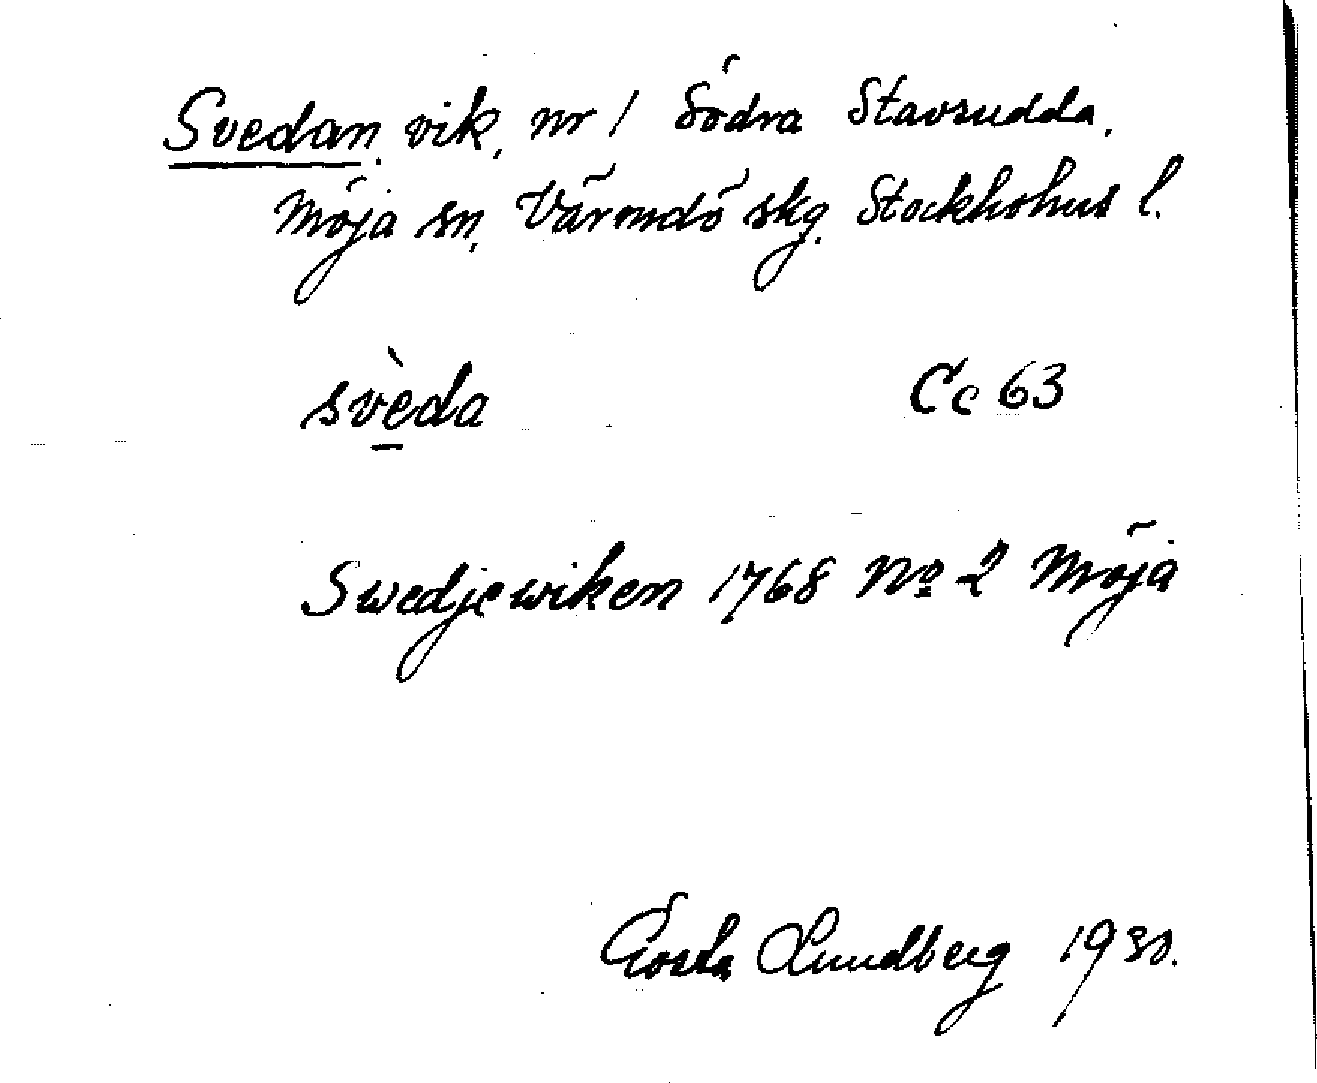 Svedan, vik, nr 1 Södra Stavsudda,
Möja sn, Värmdö skg, Stockholms l.
svèda Cc 63
Swedjewiken 1768 No 2 Möja
Gösta Lundberg 1930.